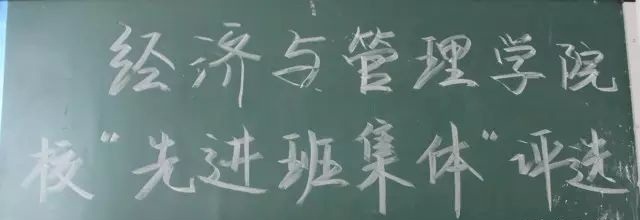 经济与管理学院
校“先进班集体”评选